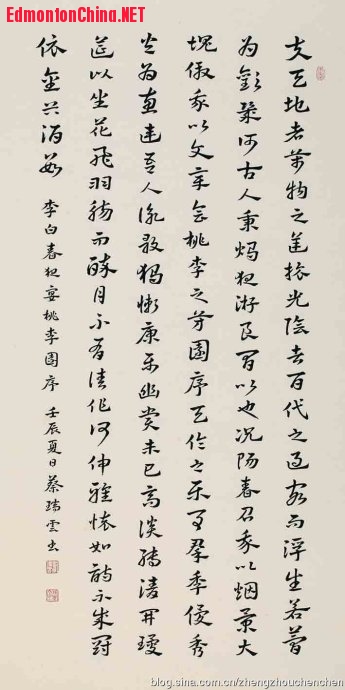 EdmontonChina.NET
夫天地者萬物之逆旅光陰者百代之過客而浮生若夢
为歡幾何古人秉燭夜游良有以也況陽春召我以烟景大
塊假我以文章會桃李之芳園序天倫之樂事羣季俊秀
皆為惠連吾人詠歌獨慚康樂幽賞未已高談轉清開瓊
筵以坐花飛羽觴而醉月不有佳作何伸雅懷如詩不成罰
依金谷酒數
李白春夜宴桃李園序 壬辰夏日蔡瑞雲书
blog.sina.com.cn/zhengzhouchenchen